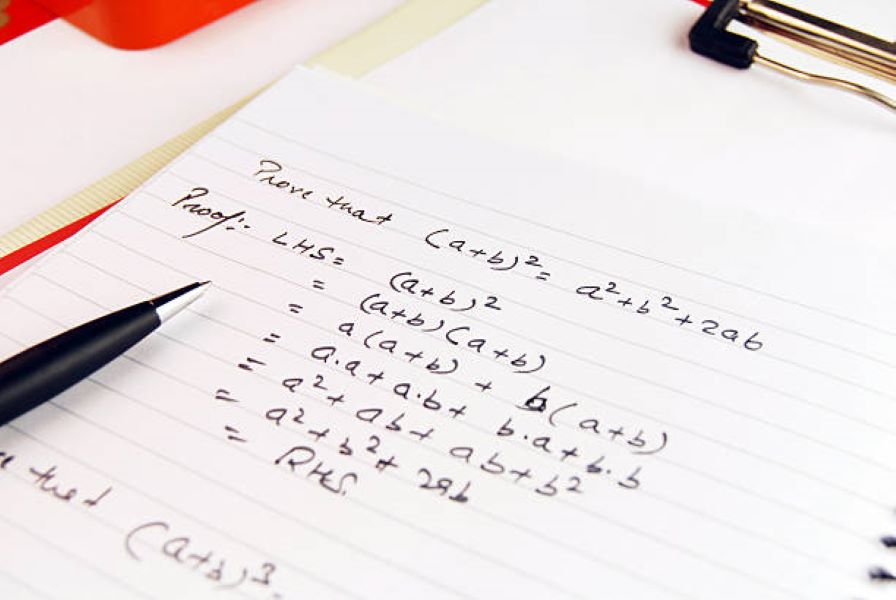 Prove that (a+b)² = a²+b²+2ab
Proof:- LHS = (a+b)²
= (a+b)(a+b)
= a(a+b) + b(a+b)
= a.a + a.b + b.a + b.b
= a² + ab + ab + b²
= a² + b² + 2ab
= RHS.
that (a+b)³